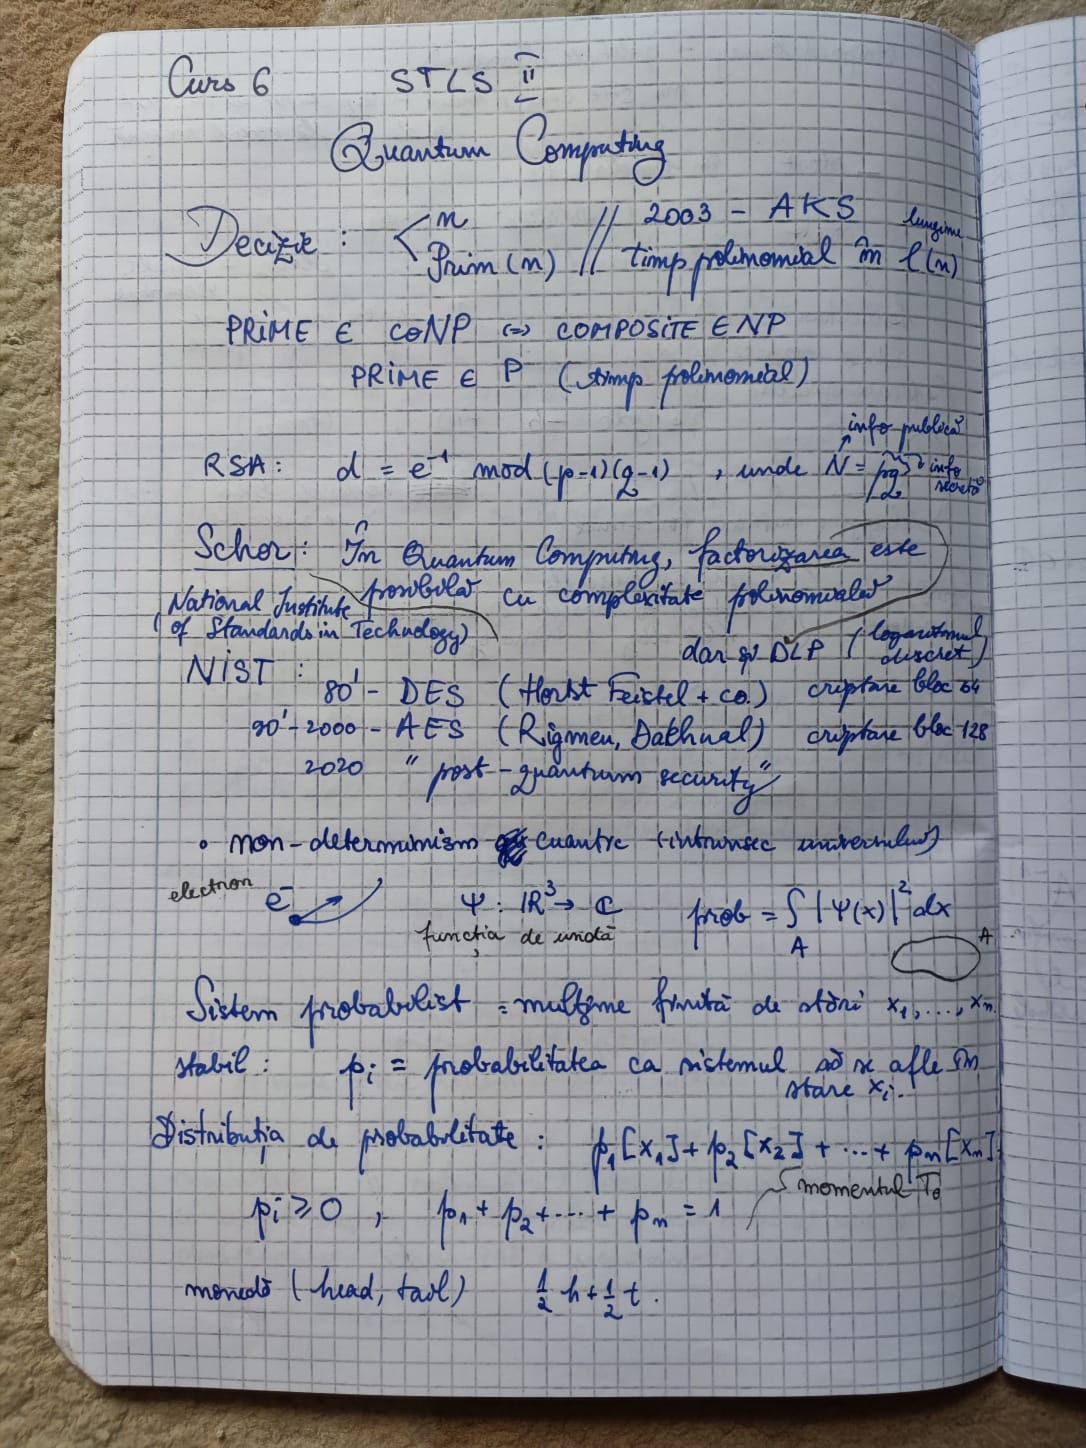 Curs 6 STLS II
Quantum Computing
Decizie : < n // 2003 - AKS lungime
Prim(n) // timp polinomial în l(n)
PRIME ∈ coNP <=> COMPOSITE ∈ NP
PRIME ∈ P (timp polinomial)
info publică
RSA: d = e⁻¹ mod (p-1)(q-1) , unde N = pq info secretă
Schor: În Quantum Computing, factorizarea este
posibilă cu complexitate polinomială
(National Institute
of Standards in Technology)
dar și DLP (logaritmul discret)
NIST :
80' - DES (Horst Feistel + co.) criptare bloc 64
90' - 2000 - AES (Rigmen, Dakhual) criptare bloc 128
2020 "post-quantum security"
• non-determinism cuantic (intrinsec universului)
electron e⁻ Ψ : ℝ³ → ℂ prob = ∫ |Ψ(x)|² dx
A
funcția de undă A
Sistem probabilist = mulțime finită de stări x₁, ..., xₙ
stabil : pᵢ = probabilitatea ca sistemul să se afle în
stare xᵢ.
Distribuția de probabilitate : p₁[x₁] + p₂[x₂] + ... + pₙ[xₙ]
momentul T₀
pᵢ ≥ 0 , p₁ + p₂ + ... + pₙ = 1
monedă (head, tail) ½ h + ½ t .